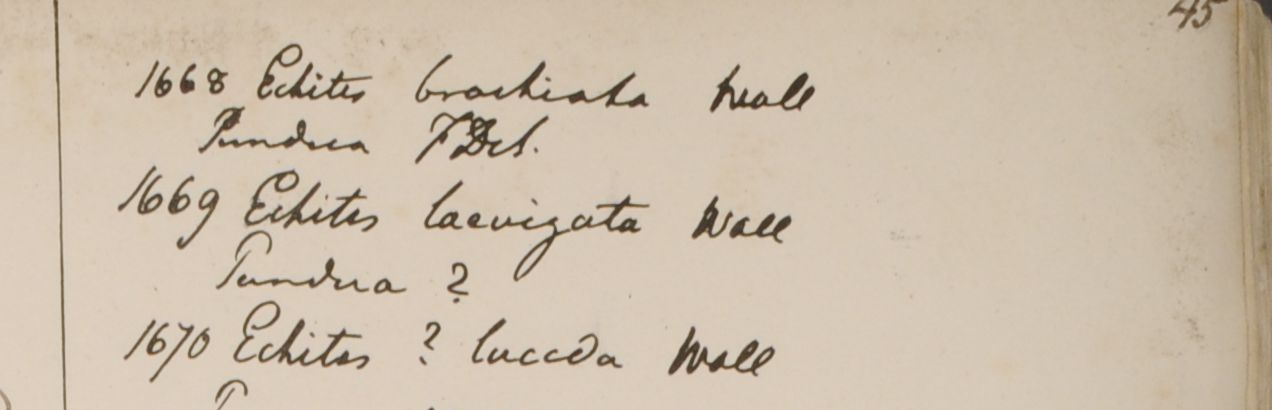 45
1668 Echites brachiata Wall
Pundua F. D. S.
1669 Echites laevigata Wall
Pundua ?
1670 Echites ? lucida Wall